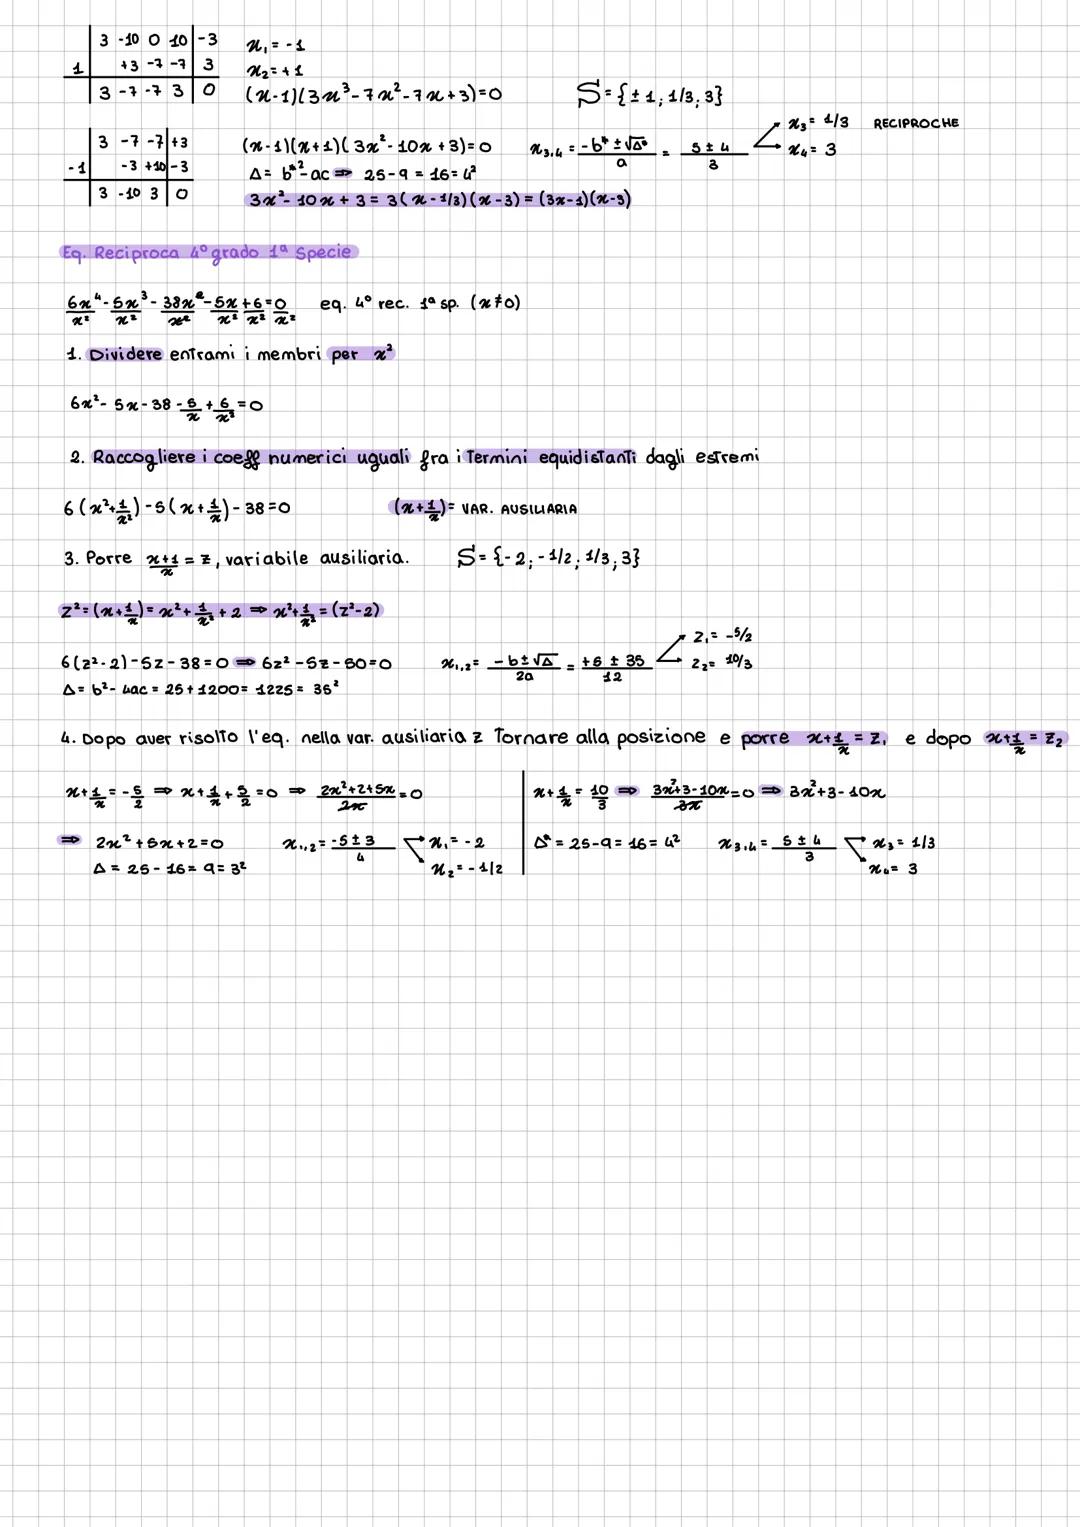 3 -10 0 10 -3
1 +3 -7 -7 3
3 -7 -7 3 0
x₁ = -1
x₂ = +1
(x-1)(3x³-7x²-7x+3)=0 S={±1; 1/3; 3}
3 -7 -7 +3
-1 -3 +10 -3
3 -10 3 0
(x-1)(x+1)(3x²-10x+3)=0 x₃,₄ = -b* ± √Δ* / a = 5 ± 4 / 3 x₃ = 1/3 x₄ = 3 RECIPROCHE
Δ = b*² - ac ⇒ 25-9 = 16 = 4²
3x² - 10x + 3 = 3(x - 1/3)(x - 3) = (3x-1)(x-3)
Eq. Reciproca 4° grado 1ª Specie
6x⁴/x² - 5x³/x² - 38x²/x² - 5x/x² + 6/x² = 0/x² eq. 4° rec. 1ª sp. (x≠0)
1. Dividere entrami i membri per x²
6x² - 5x - 38 - 5/x + 6/x² = 0
2. Raccogliere i coeff numerici uguali fra i Termini equidistanti dagli estremi
6(x²+1/x²) - 5(x+1/x) - 38 = 0 (x+1/x) = VAR. AUSILIARIA
3. Porre x+1/x = z, variabile ausiliaria. S={-2; -1/2; 1/3; 3}
z² = (x+1/x) = x² + 1/x² + 2 ⇒ x²+1/x² = (z²-2)
6(z²-2) - 5z - 38 = 0 ⇒ 6z² - 5z - 50 = 0 x₁,₂ = -b ± √Δ / 2a = +5 ± 35 / 12 z₁ = -5/2 z₂ = 10/3
Δ = b² - 4ac = 25 + 1200 = 1225 = 35²
4. Dopo aver risolto l'eq. nella var. ausiliaria z Tornare alla posizione e porre x+1/x = z₁ e dopo x+1/x = z₂
x+1/x = -5/2 ⇒ x+1/x+5/2 = 0 ⇒ 2x²+2+5x/2x = 0
⇒ 2x² + 5x + 2 = 0 x₁,₂ = -5 ± 3 / 4 x₁ = -2 x₂ = -1/2
Δ = 25 - 16 = 9 = 3²
x+1/x = 10/3 ⇒ 3x²+3-10x/3x = 0 ⇒ 3x²+3-10x
Δ* = 25-9 = 16 = 4² x₃,₄ = 5 ± 4 / 3 x₃ = 1/3 x₄ = 3